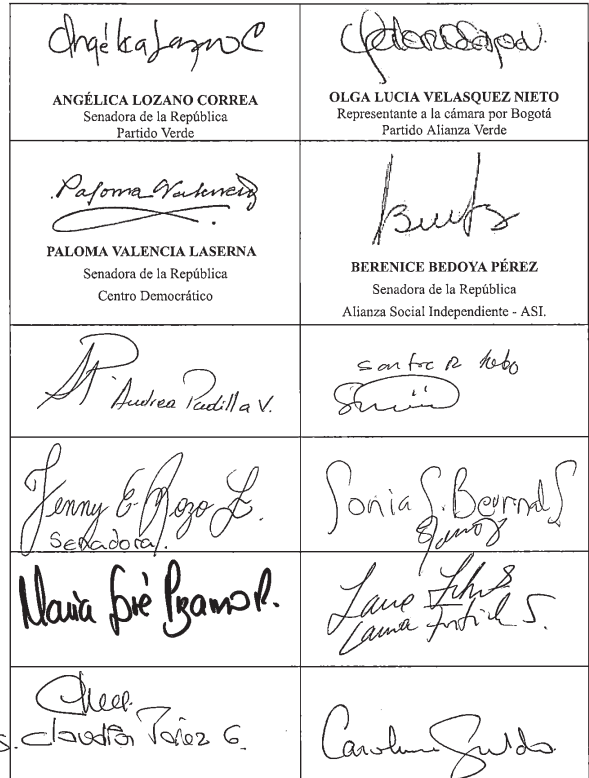 Angélica Lozano C
ANGÉLICA LOZANO CORREA
Senadora de la República
Partido Verde
OLGA LUCIA VELASQUEZ NIETO
Representante a la cámara por Bogotá
Partido Alianza Verde
Paloma Valencia
PALOMA VALENCIA LASERNA
Senadora de la República
Centro Democrático
BERENICE BEDOYA PÉREZ
Senadora de la República
Alianza Social Independiente - ASI.
Andrea Padilla V.
Jenny E. Rozo Z.
Senadora.
Sonia S. Bernal S
María José Pizarro R.
Laura Fortich S.
S. Claudia Pérez G.
Carolina